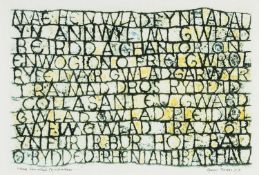 MAE HEN WLAD FY NHADAU
YN ANNWYL I MI GWLAD
BEIRDD A CHANTORION
ENWOGION O FRI EI GWROL
RYFELWYR GWLADGARWYR
TRA MAD TROS RYDDID
GOLLASANT EU GWAED
GWLAD GWLAD PLEIDIOL
WYF I'M GWLAD TRA MOR
YN FUR I'R BUR HOFF BAU
O BYDDED I'R HEN IAITH BARHAU